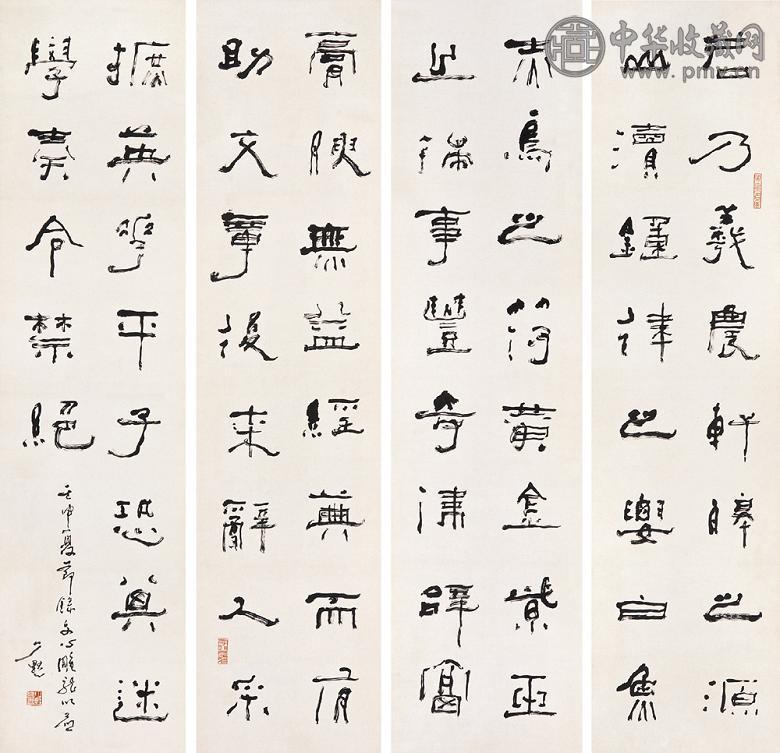 若乃羲農軒皞之源
山瀆鍾律之要白魚
赤烏之符黃金紫玉
之瑞事豐奇偉辭富
膏腴無益經典而有
助文章後來辭人采
摭英華平子恐其迷
學奏令禁絕
壬申夏節錄文心雕龍以
少默
中华收藏网
www.pmx.cn